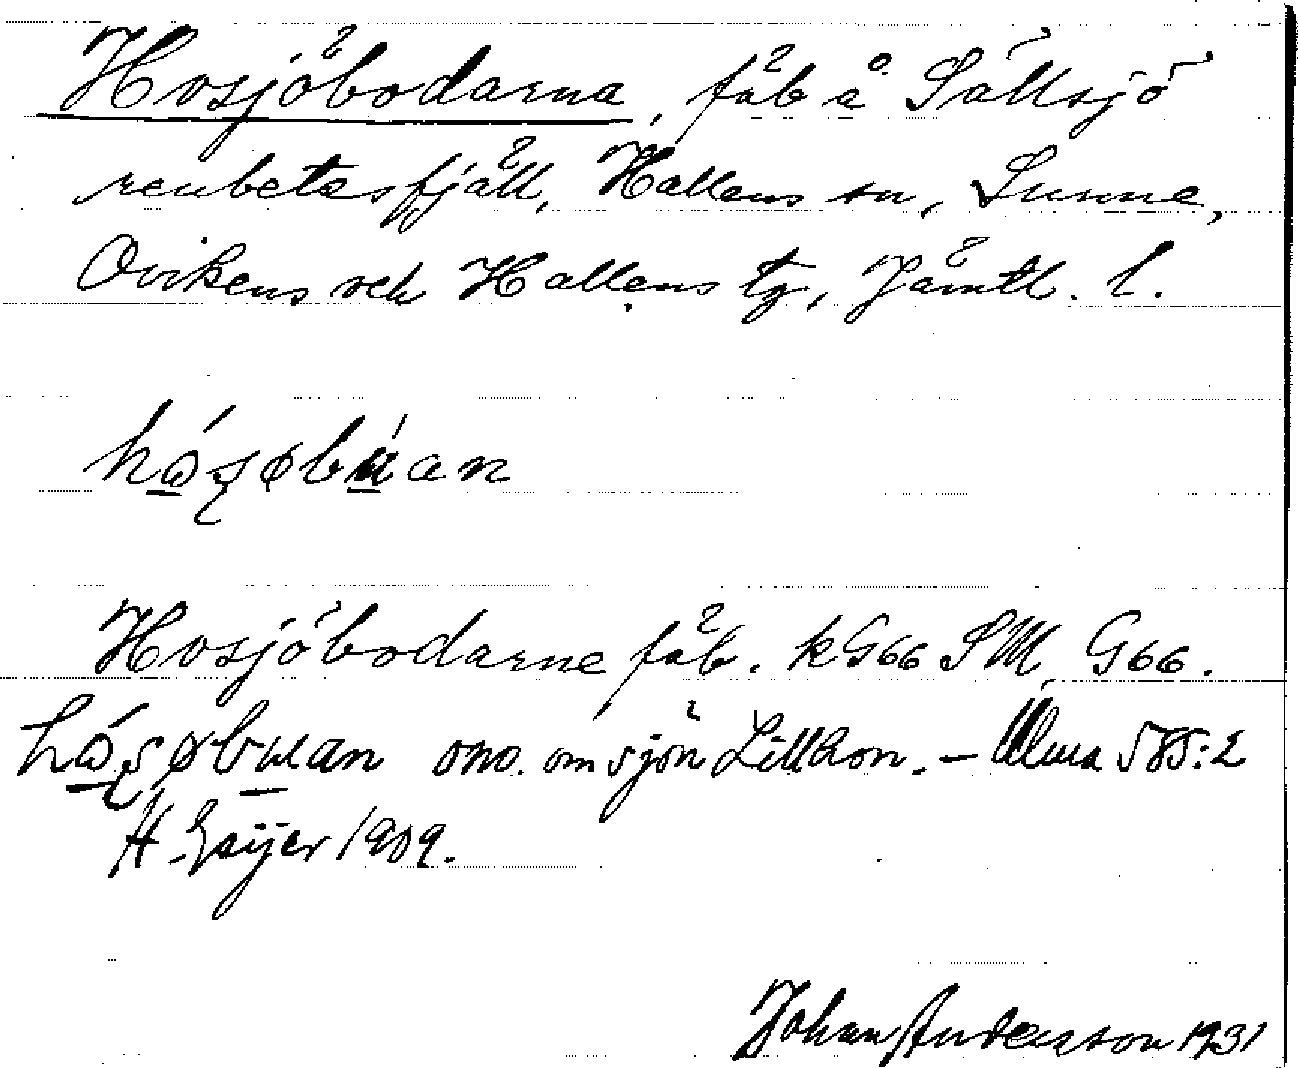 Hosjöbodarna, fäb å Sällsjö
renbetesfjäll, Hallens sn, Sunne,
Ovikens och Hallens tg, Jämtl. l.
Hosjöbodarne fäb. kG66 SM, G66.
ono. om sjön Lillhon. – Ulma 585:2
H. Geijer 1909.
Johan Andersson 1931